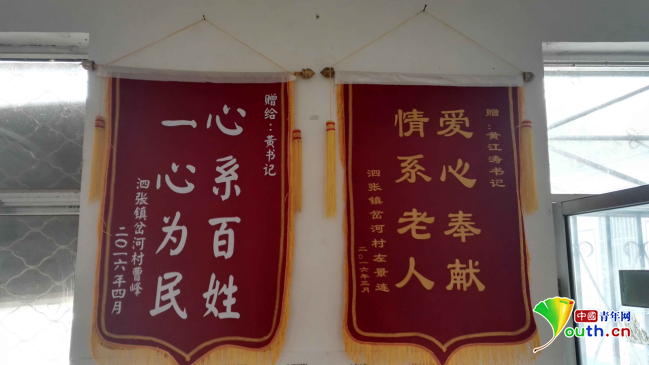 赠给：黄书记
心系百姓
一心为民
泗张镇岔河村曹峰
二〇一六年四月
赠：黄江涛书记
爱心奉献
情系老人
泗张镇岔河村左景连
二〇一六年三月
中國青年网
Youth.cn